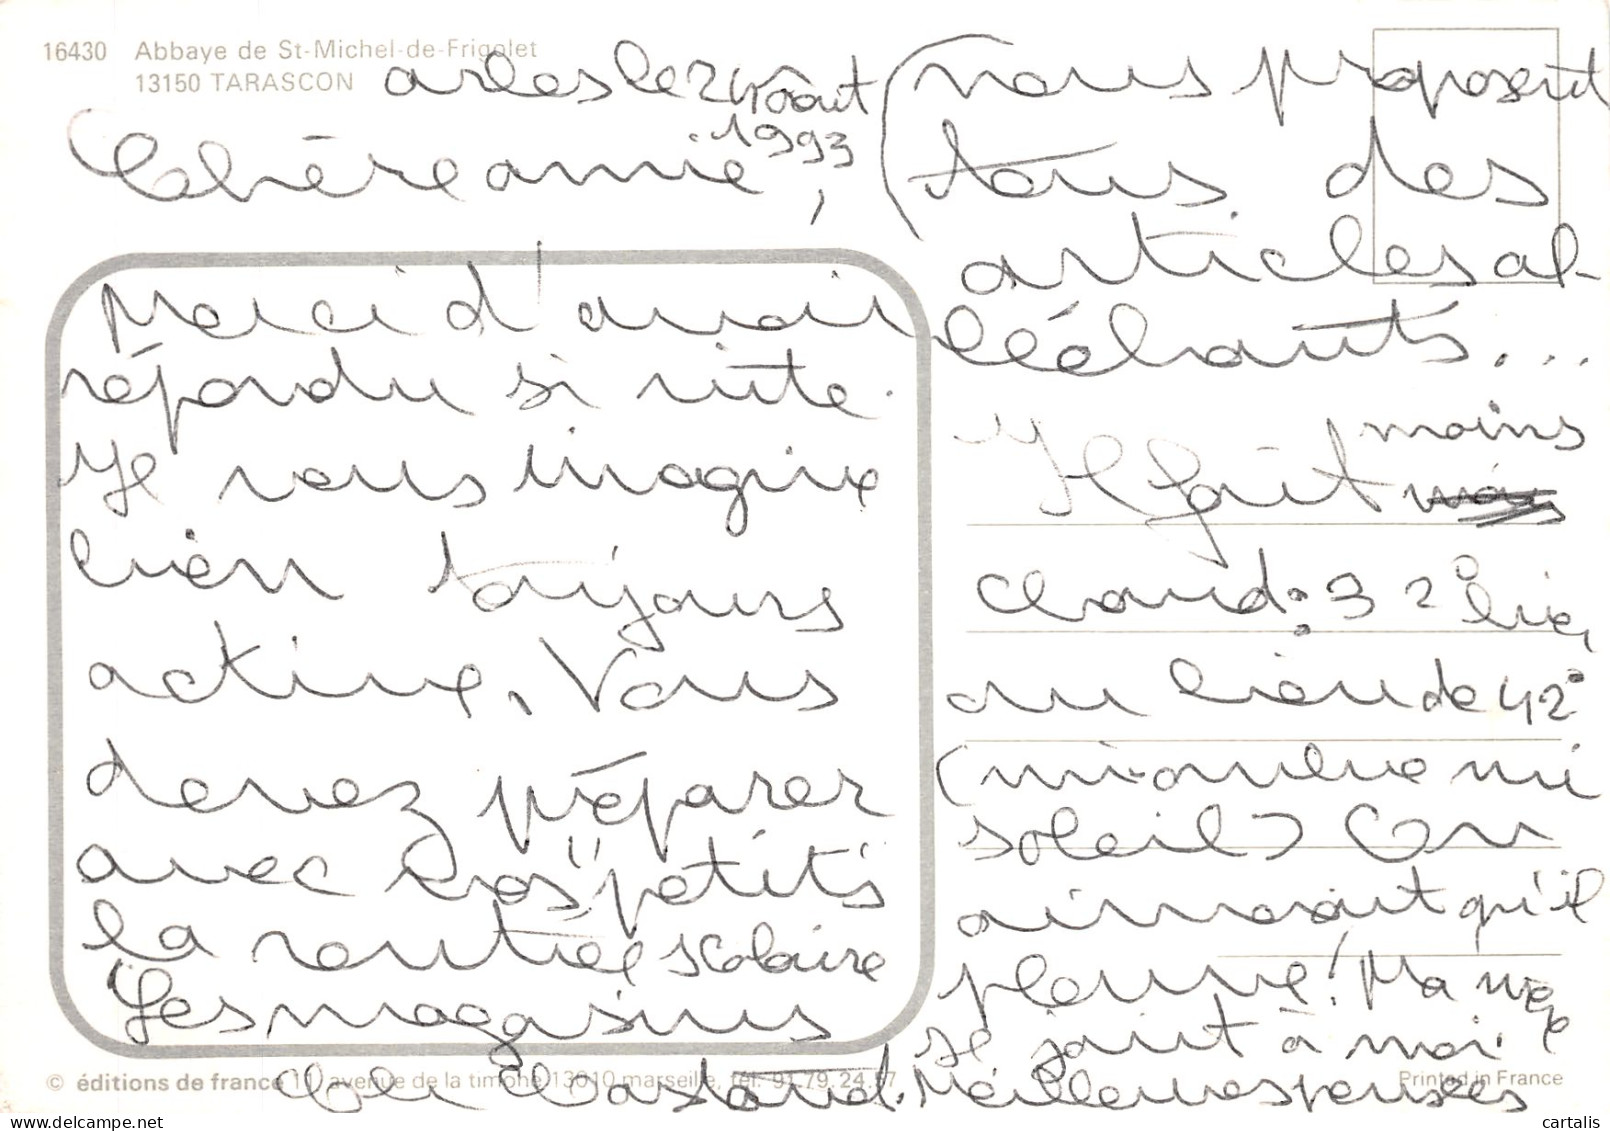 16430 Abbaye de St-Michel-de-Frigolet
13150 TARASCON
arles le 24 août
1993
Chère amie,
Merci d'avoir
répondu si vite.
Je vous imagine
bien toujours
active. Vous
devez préparer
avec vos "petits"
la rentrée scolaire
Les magasins
(nous proposent
tous des
articles al-
léchants...
Il fait moins
chaud : 32° hier,
au lieu de 42°
(mi-ombre mi
soleil) On
aimerait qu'il
pleuve! Ma mère
se joint à moi
Meilleures pensées
© éditions de france 10, avenue de la timone 13010 marseille, tél. 91.79.24.57
Printed in France
cartalis